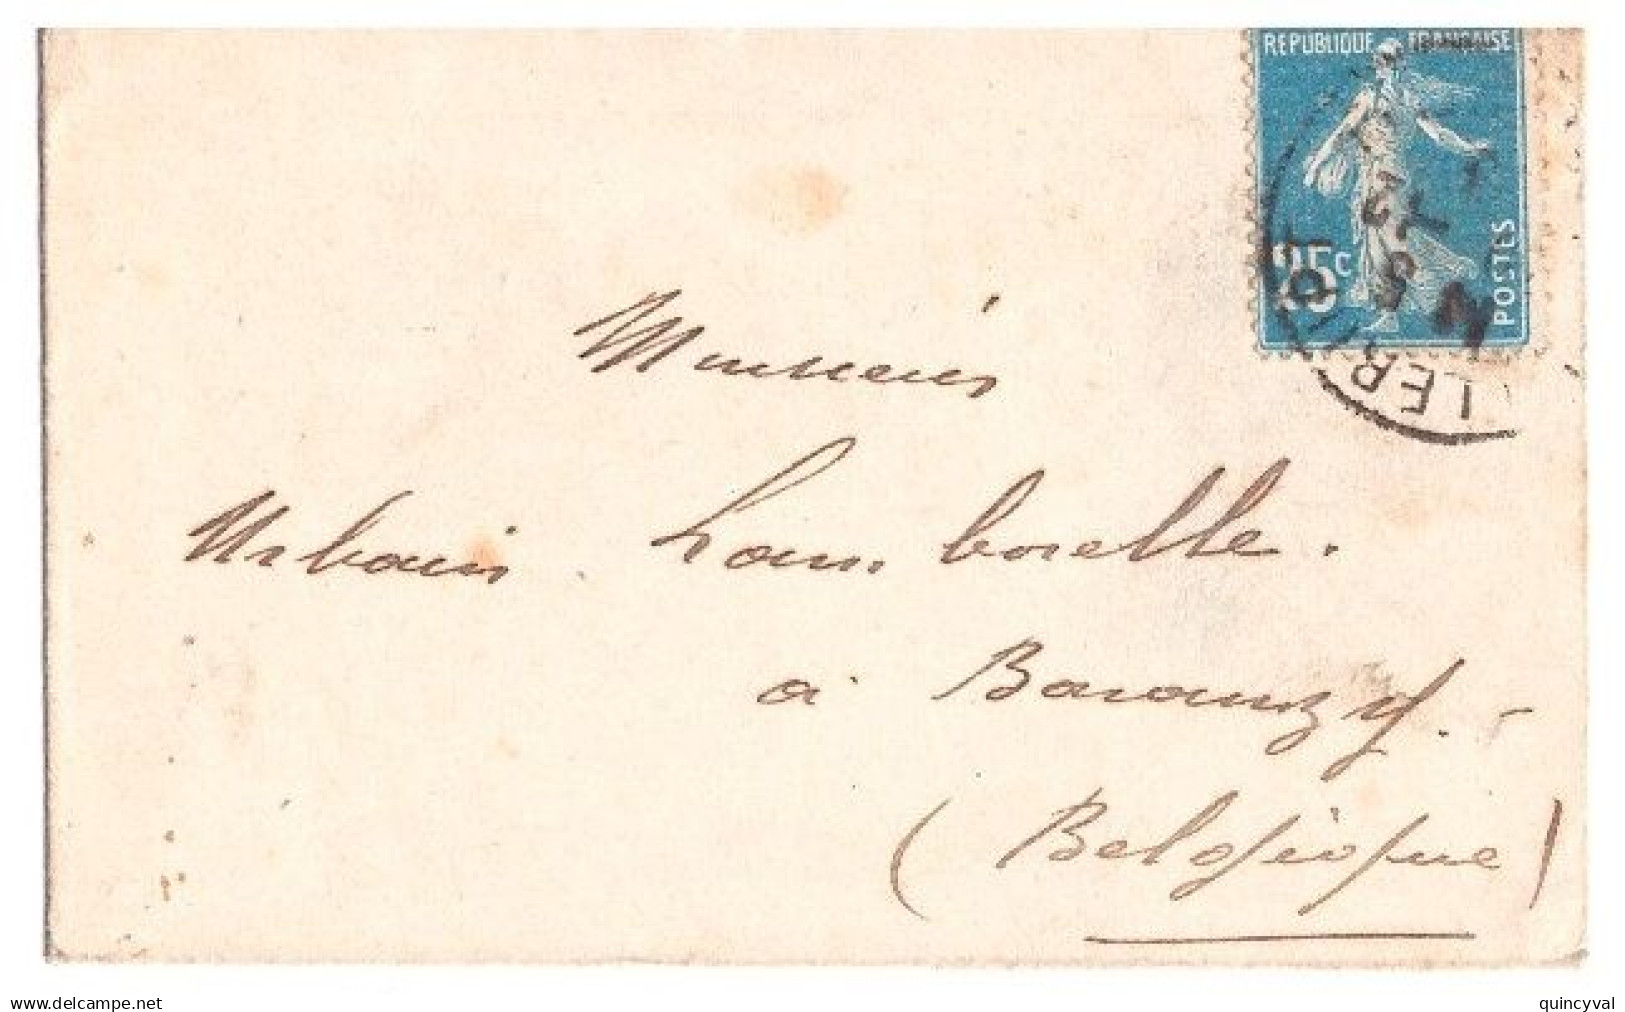 REPUBLIQUE FRANCAISE
25c
POSTES
Monsieur
Urbain Lamborelle.
à Baranzy.-
(Belgique)
www.delcampe.net
quincyval